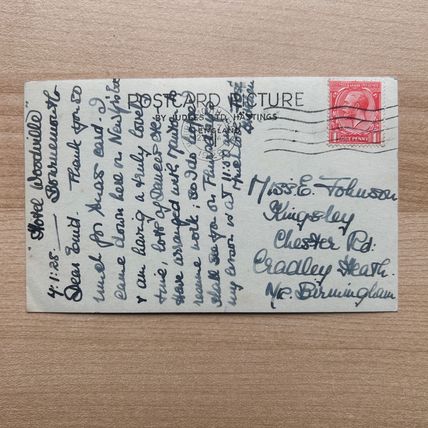 POSTCARD PICTURE
BY JUDGES LTD HASTINGS
ENGLAND
"Hotel Woodville"
4.1.28 — Bournemouth
Dear Enid. Thank you so
much for Xmas card. I
came down here on New
& am having a truly lovely
time, lots of Dances etc.
Have arranged with
resume work, so I do hope I
shall see you on Thursday
my lesson is at 11.50
Miss E. Johnson
Kingsley
Chester Rd.
Cradley Heath.
Nr. Birmingham
ONE PENNY